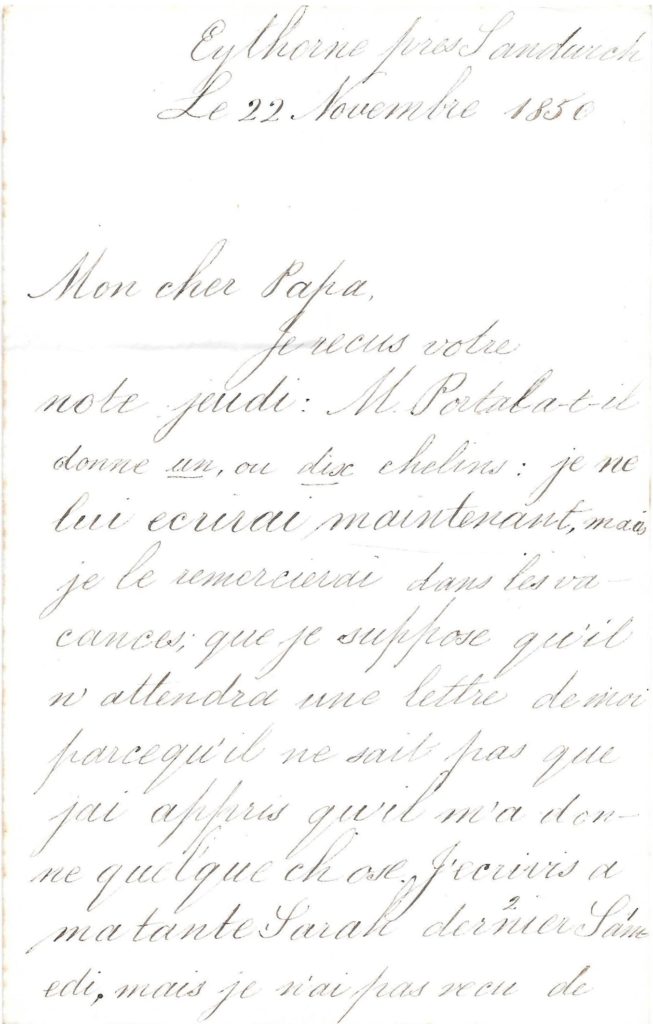 Eythorne pres Sandwich
Le 22 Novembre 1850
Mon cher Papa,
Je recus votre
note jeudi: M. Portal a-t-il
donne un, ou dix chelins: je ne
lui ecrirai maintenant, mais
je le remercierai dans les va-
cances; que je suppose qu'il
n'attendra une lettre de moi
parcequ'il ne sait pas que
jai appris qu'il m'a don-
ne quel'que chose. J'ecrivis a
ma tante Sarah dernier 2 Sam-
edi, mais je n'ai pas recu de